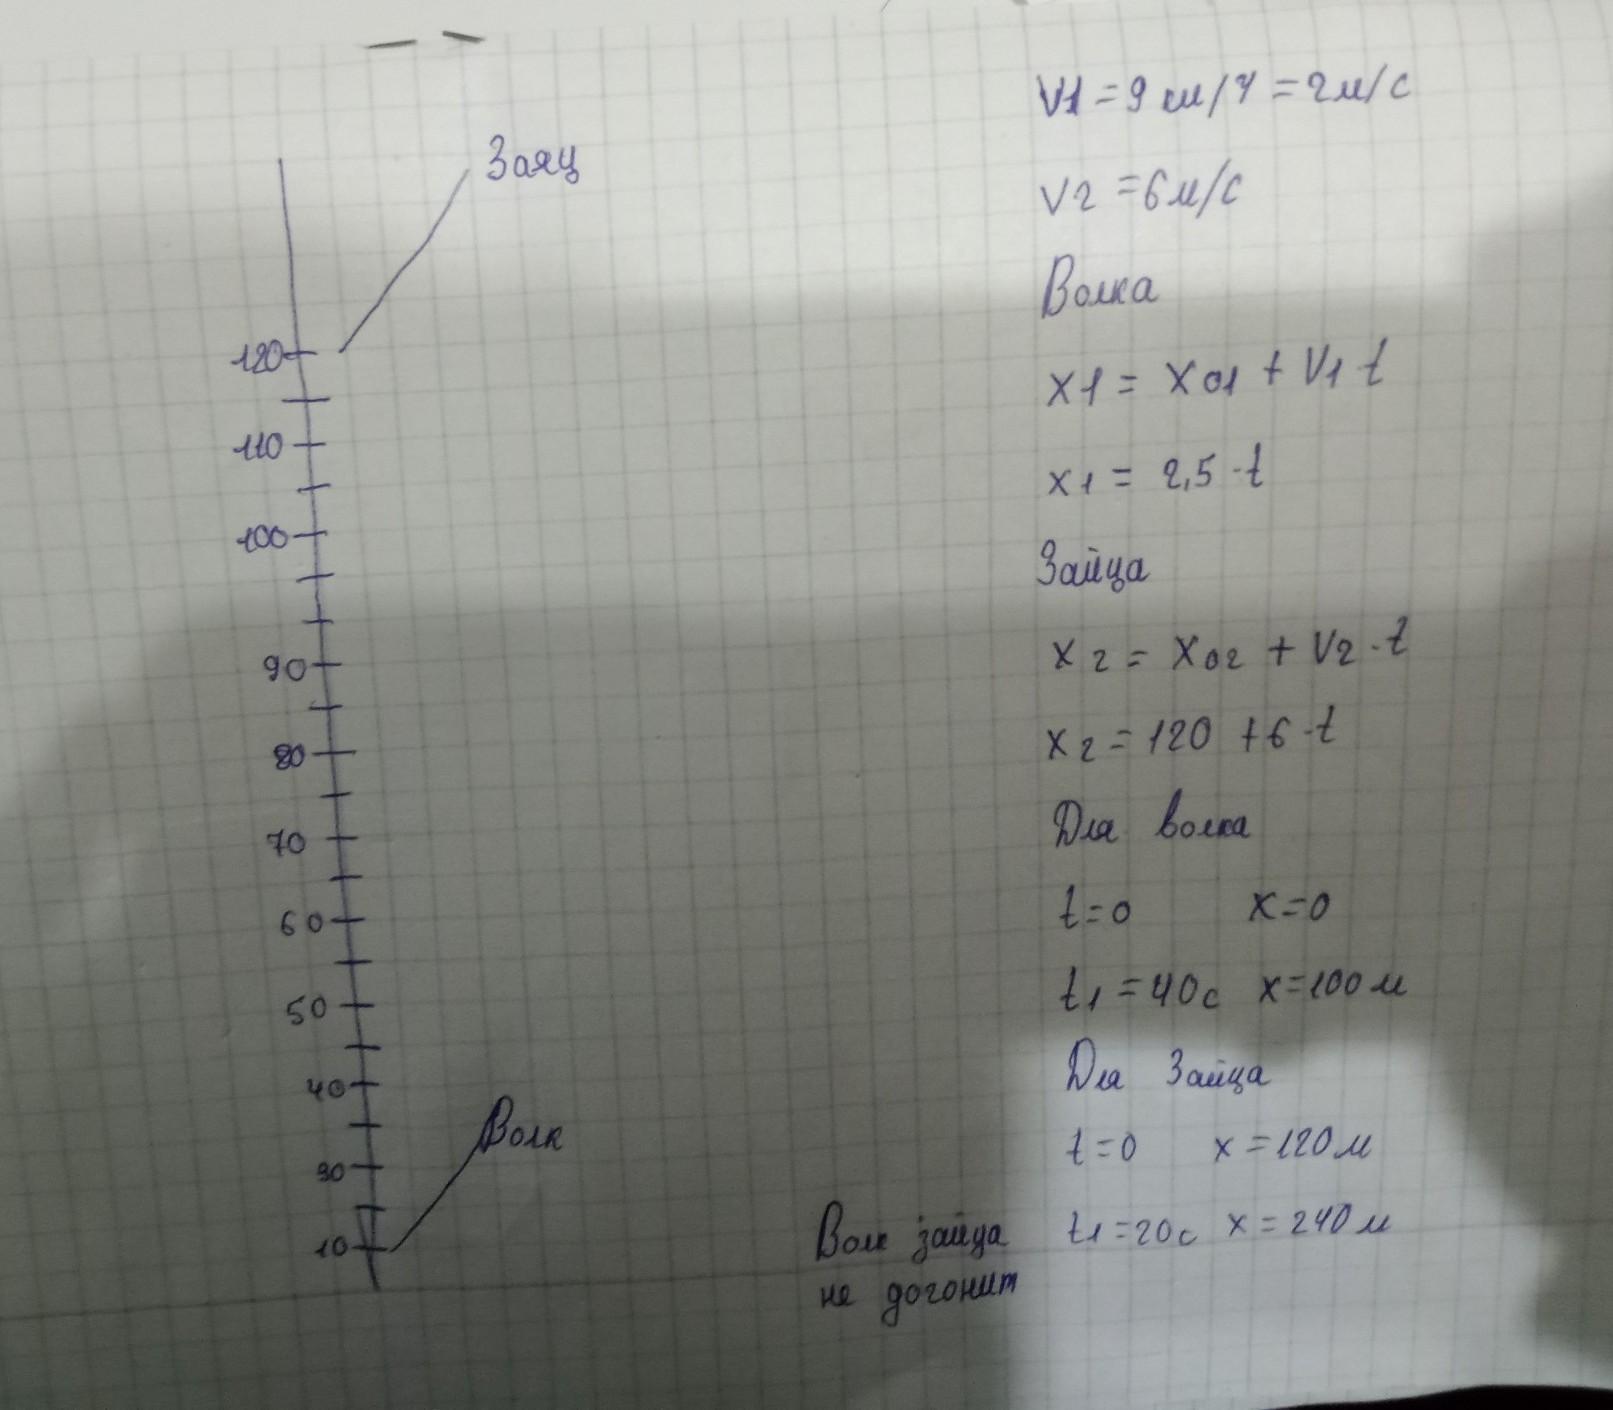 Заяц
120
110
100
90
80
70
60
50
40
30
10
Волк
V1 = 9 км/ч = 2м/с
V2 = 6м/с
Волка
x1 = x01 + V1 t
x1 = 2,5 · t
Зайца
x2 = x02 + V2 · t
x2 = 120 + 6 · t
Для волка
t=0 x=0
t1 = 40с x=100м
Для Зайца
t=0 x=120м
t1=20с x=240м
Волк зайца
не догонит